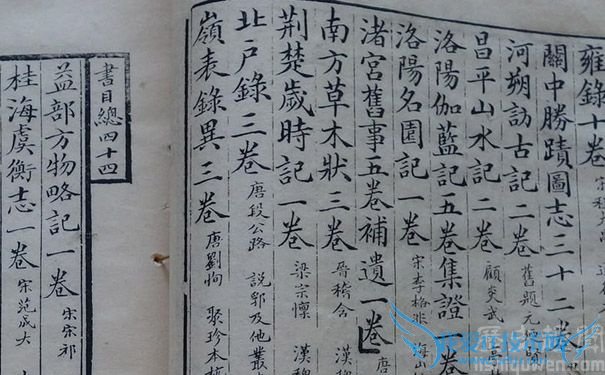 雍錄十卷
關中勝蹟圖志三十二卷
河朔訪古記二卷 舊題元
昌平山水記二卷 顧炎武
洛陽伽藍記五卷集證 卷
洛陽名園記一卷 宋李格非 海山
渚宮舊事五卷補遺一卷 唐
南方草木狀三卷 晉嵇含 漢魏
荆楚歲時記一卷 梁宗懍 漢魏
北户錄三卷 唐段公路 說郛及他叢
嶺表錄異三卷 唐劉恂 聚珍本
書目總四十四
益部方物略記一卷 宋宋祁
桂海虞衡志一卷 宋范成大
lishiquwen.com